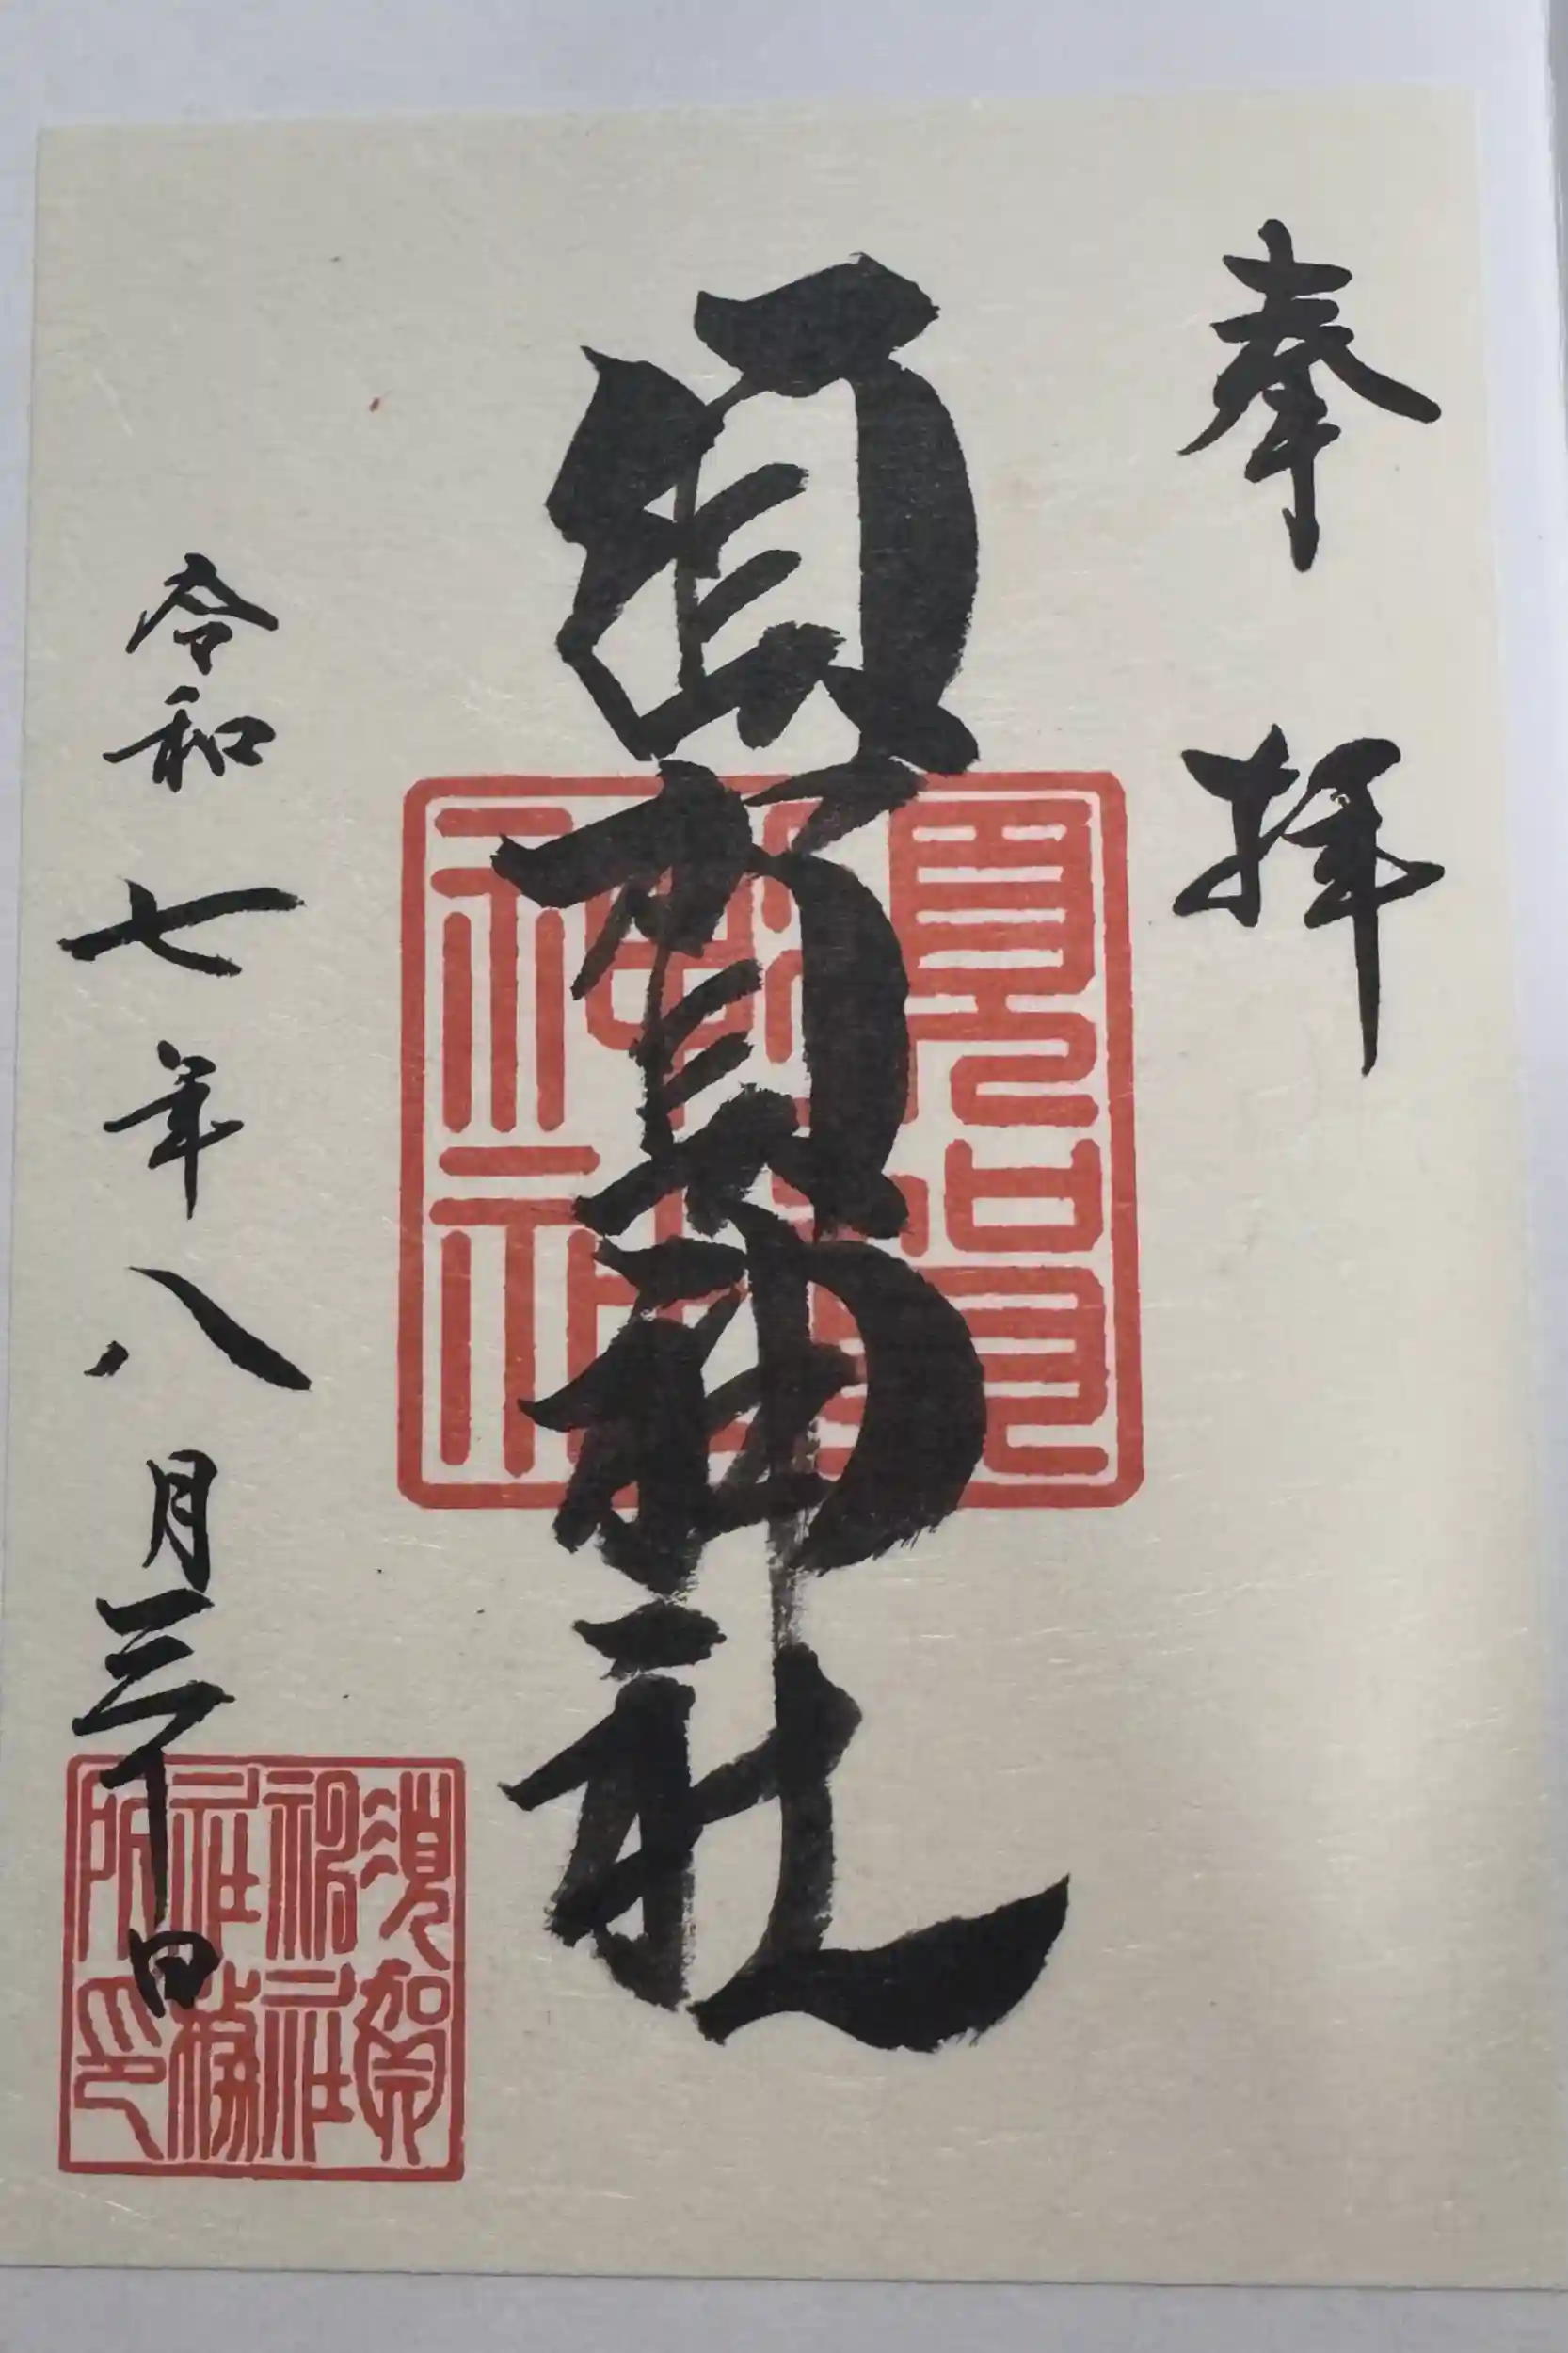 奉拝
須賀神社
須賀神社
令和七年八月三十日
須賀神社社務所印